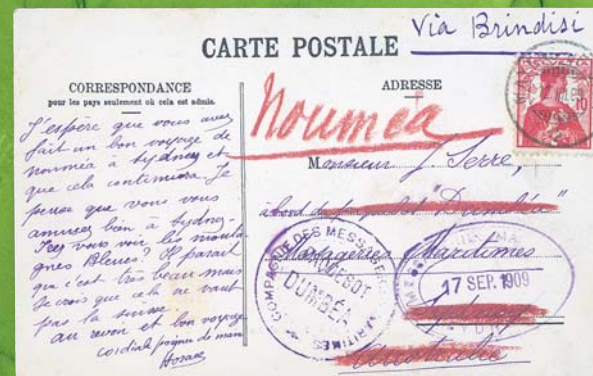 Via Brindisi
CARTE POSTALE
CORRESPONDANCE
pour les pays seulement où cela est admis.
J'espère que vous avez
fait un bon voyage de
nouméa à Sydney et
que cela continuera. Je
pense que vous vous
amusez bien à Sydney.
Irez vous voir les monta
gnes Bleues? Il parait
que c'est très beau mais
je crois que cela ne vaut
pas la suisse.
au revoir et bon voyage
cordiale poignée de main
Horace
ADRESSE
Nouméa
Monsieur J. Serre,
à bord du paquebot "Dumbéa"
Messageries Maritimes
Sydney
Australie
COMPAGNIE DES MESSAGERIES MARITIMES
PAQUEBOT
DUMBÉA
17 SEP. 1909
HELVETIA
10